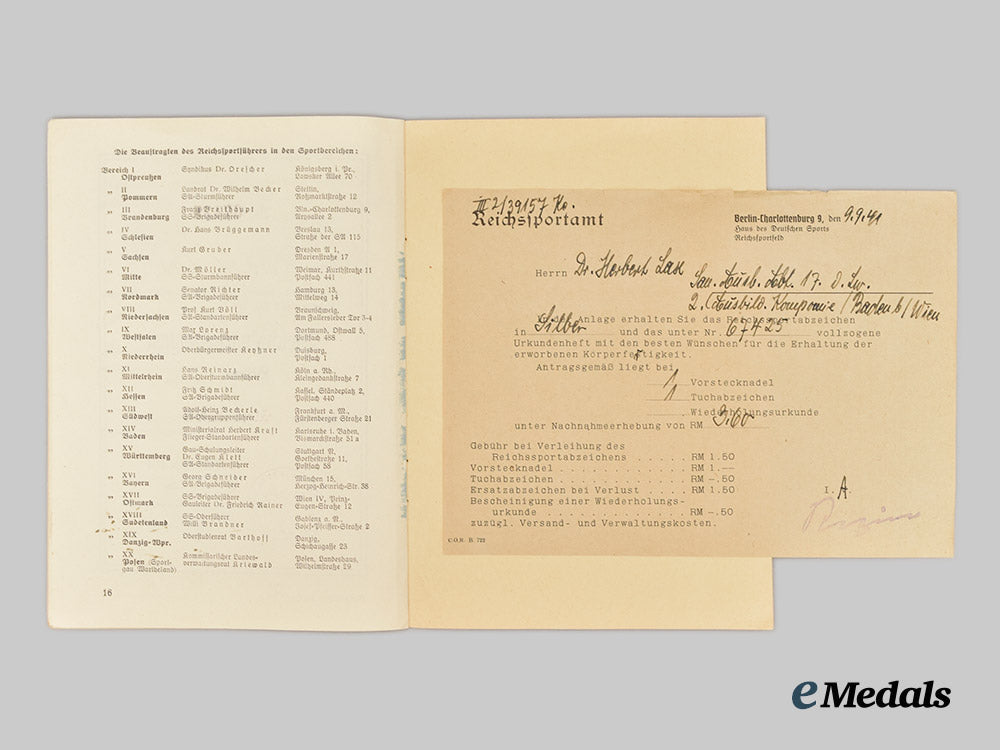 Die Beauftragten des Reichssportführers in den Sportbereichen:
Bereich I Syndikus Dr. Drescher Königsberg i. Pr.,
Ostpreußen Lawsker Allee 70
„ II Landrat Dr. Wilhelm Becker Stettin,
Pommern SA-Sturmführer Roßmarktstraße 12
„ III Franz Breithaupt Bln.-Charlottenburg 9,
Brandenburg SS-Brigadeführer Arysallee 2
„ IV Dr. Hans Brüggemann Breslau 13,
Schlesien Straße der SA 115
„ V Kurt Gruber Dresden A 1,
Sachsen Marienstraße 17
„ VI Dr. Möller Weimar, Kurthstraße 11
Mitte SS-Sturmbannführer Postfach 441
„ VII Senator Richter Hamburg 13,
Nordmark SA-Brigadeführer Mittelweg 14
„ VIII Prof Kurt Völl Braunschweig,
Niedersachsen SA-Standartenführer Am Fallersleber Tor 3-4
„ IX Max Lorenz Dortmund, Ostwall 5,
Westfalen SA-Brigadeführer Postfach 488
„ X Oberbürgermeister Keyßner Duisburg,
Niederrhein Postfach 1
„ XI Hans Reinarz Köln a. Rh.,
Mittelrhein SA-Obersturmbannführer Kleingedankstraße 7
„ XII Fritz Schmidt Kassel, Ständeplatz 2,
Hessen SA-Brigadeführer Postfach 440
„ XIII Adolf-Heinz Beckerle Frankfurt a. M.,
Südwest SA-Obergruppenführer Fürstenberger Straße 21
„ XIV Ministerialrat Herbert Kraft Karlsruhe i. Baden,
Baden Flieger-Standartenführer Bismarckstraße 51 a
„ XV Gau-Schulungsleiter Stuttgart N,
Württemberg Dr. Eugen Klett Goethestraße 11,
SA-Standartenführer Postfach 58
„ XVI Georg Schneider München 15,
Bayern SA-Brigadeführer Herzog-Heinrich-Str. 38
„ XVII SS-Brigadeführer Wien IV, Prinz-
Ostmark Gauleiter Dr. Friedrich Rainer Eugen-Straße 12
„ XVIII SS-Oberführer Gablenz a. N.,
Sudetenland Willi Brandner Josef-Pfeiffer-Straße 2
„ XIX Oberstudienrat Barthoff Danzig,
Danzig-Wpr. Schichaugasse 23
„ XX Kommissarischer Landes- Posen, Landeshaus,
Posen (Sport- verwaltungsrat Kriewald Wilhelmstraße 29
gau Wartheland)
16
III 2/39157 Ko.
Reichssportamt
Berlin-Charlottenburg 9, den 9.9.41
Haus des Deutschen Sports
Reichssportfeld
Herrn Dr. Herbert Lax
San. Ausb. Abt. 17. d. Lw.
2. Ausbild. Kompanie / Baden b/Wien
Anlage erhalten Sie das Reichssportabzeichen
in Silber und das unter Nr. 67425 vollzogene
Urkundenheft mit den besten Wünschen für die Erhaltung der
erworbenen Körperfertigkeit.
Antragsgemäß liegt bei
1 Vorstecknadel
Tuchabzeichen
Wiederholungsurkunde
unter Nachnahmeerhebung von RM 3.60
Gebühr bei Verleihung des
Reichssportabzeichens . . . . . RM 1.50
Vorstecknadel . . . . . . . . . . . RM 1.--
Tuchabzeichen . . . . . . . . . . . RM -.50
Ersatzabzeichen bei Verlust . . . . RM 1.50
Bescheinigung einer Wiederholungs-
urkunde . . . . . . . . . . . RM -.50
zuzügl. Versand- und Verwaltungskosten.
I. A.
C.O.R. B. 722
eMedals